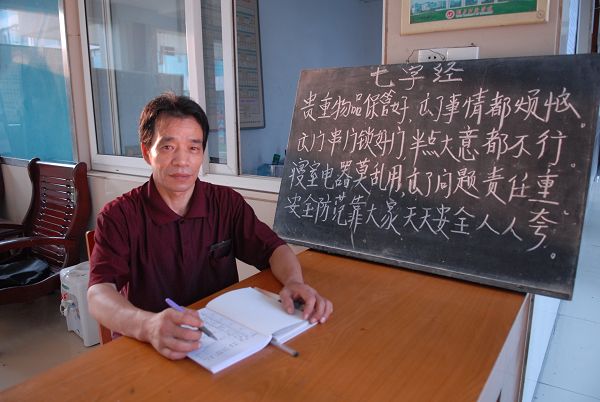 七字经
贵重物品保管好,出了事情都烦恼。
出门串门锁好门,半点大意都不行。
寝室电器莫乱用,出了问题责任重。
安全防范靠大家,天天安全人人夸。